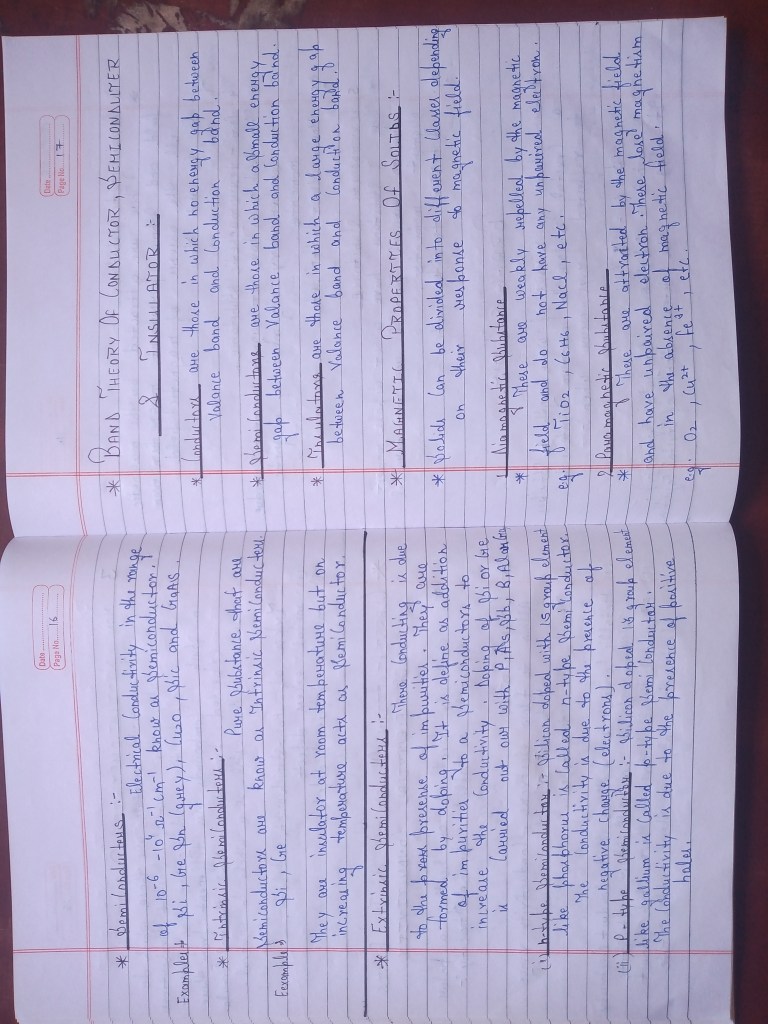 Date
Page No. 16
* Semiconductors :-
Electrical Conductivity in the range
of 10⁻⁶ - 10⁴ Ω⁻¹ cm⁻¹ know as Semiconductor.
Examples Si, Ge Sn (grey), Cu2O, Sic and GaAs.
* Intrinsic Semiconductors :-
Pure Substance that are
Semiconductors are know as Intrinsic Semiconductors
Example Si, Ge
They are insulator at room temperature but on
increasing temperature acts as Semiconductor.
* Extrinsic Semiconductors :-
These Conducting is due
to the presence of impurities. They are
formed by doping. It is define as addition
of impurities to a Semiconductors to
increase the Conductivity. Doping of Si or Ge
is Carried out our with P, As, Sb, B, Al or Ga
(i) n-type Semiconductor :- Silicon doped with 15 group element
like phosphorus is Called n-type Semiconductor.
The Conductivity is due to the presence of
negative charge (electrons).
(ii) P-type Semiconductor :- Silicon doped 13 group element
like gallium is Called p-type Semi Conductor.
The Conductivity is due to the presence of positive
holes.
Date
Page No. 17
* BAND THEORY OF CONDUCTOR, SEMICONAUTER
& INSULATOR :-
* Conductors are those in which no energy gap between
Valance band and Conduction band.
* Semiconductors are those in which a Small energy
gap between Valance band and Conduction band.
* Insulators are those in which a large energy gap
between Valance band and Conduction band.
* MAGNETIC PROPERTIES OF SOLIDS :-
* Solids Can be divided into different Classes depending
on their response to magnetic field.
1 Diamagnetic Substance
* These are weakly repelled by the magnetic
field and do not have any unpaired electron.
e.g. TiO2, C6H6, Nacl, etc.
2 Paramagnetic Substance
* These are attracted by the magnetic field
and have unpaired electron. These lose magnetism
in the absence of magnetic field.
e.g. O2, Cu²⁺, Fe³⁺, etc.